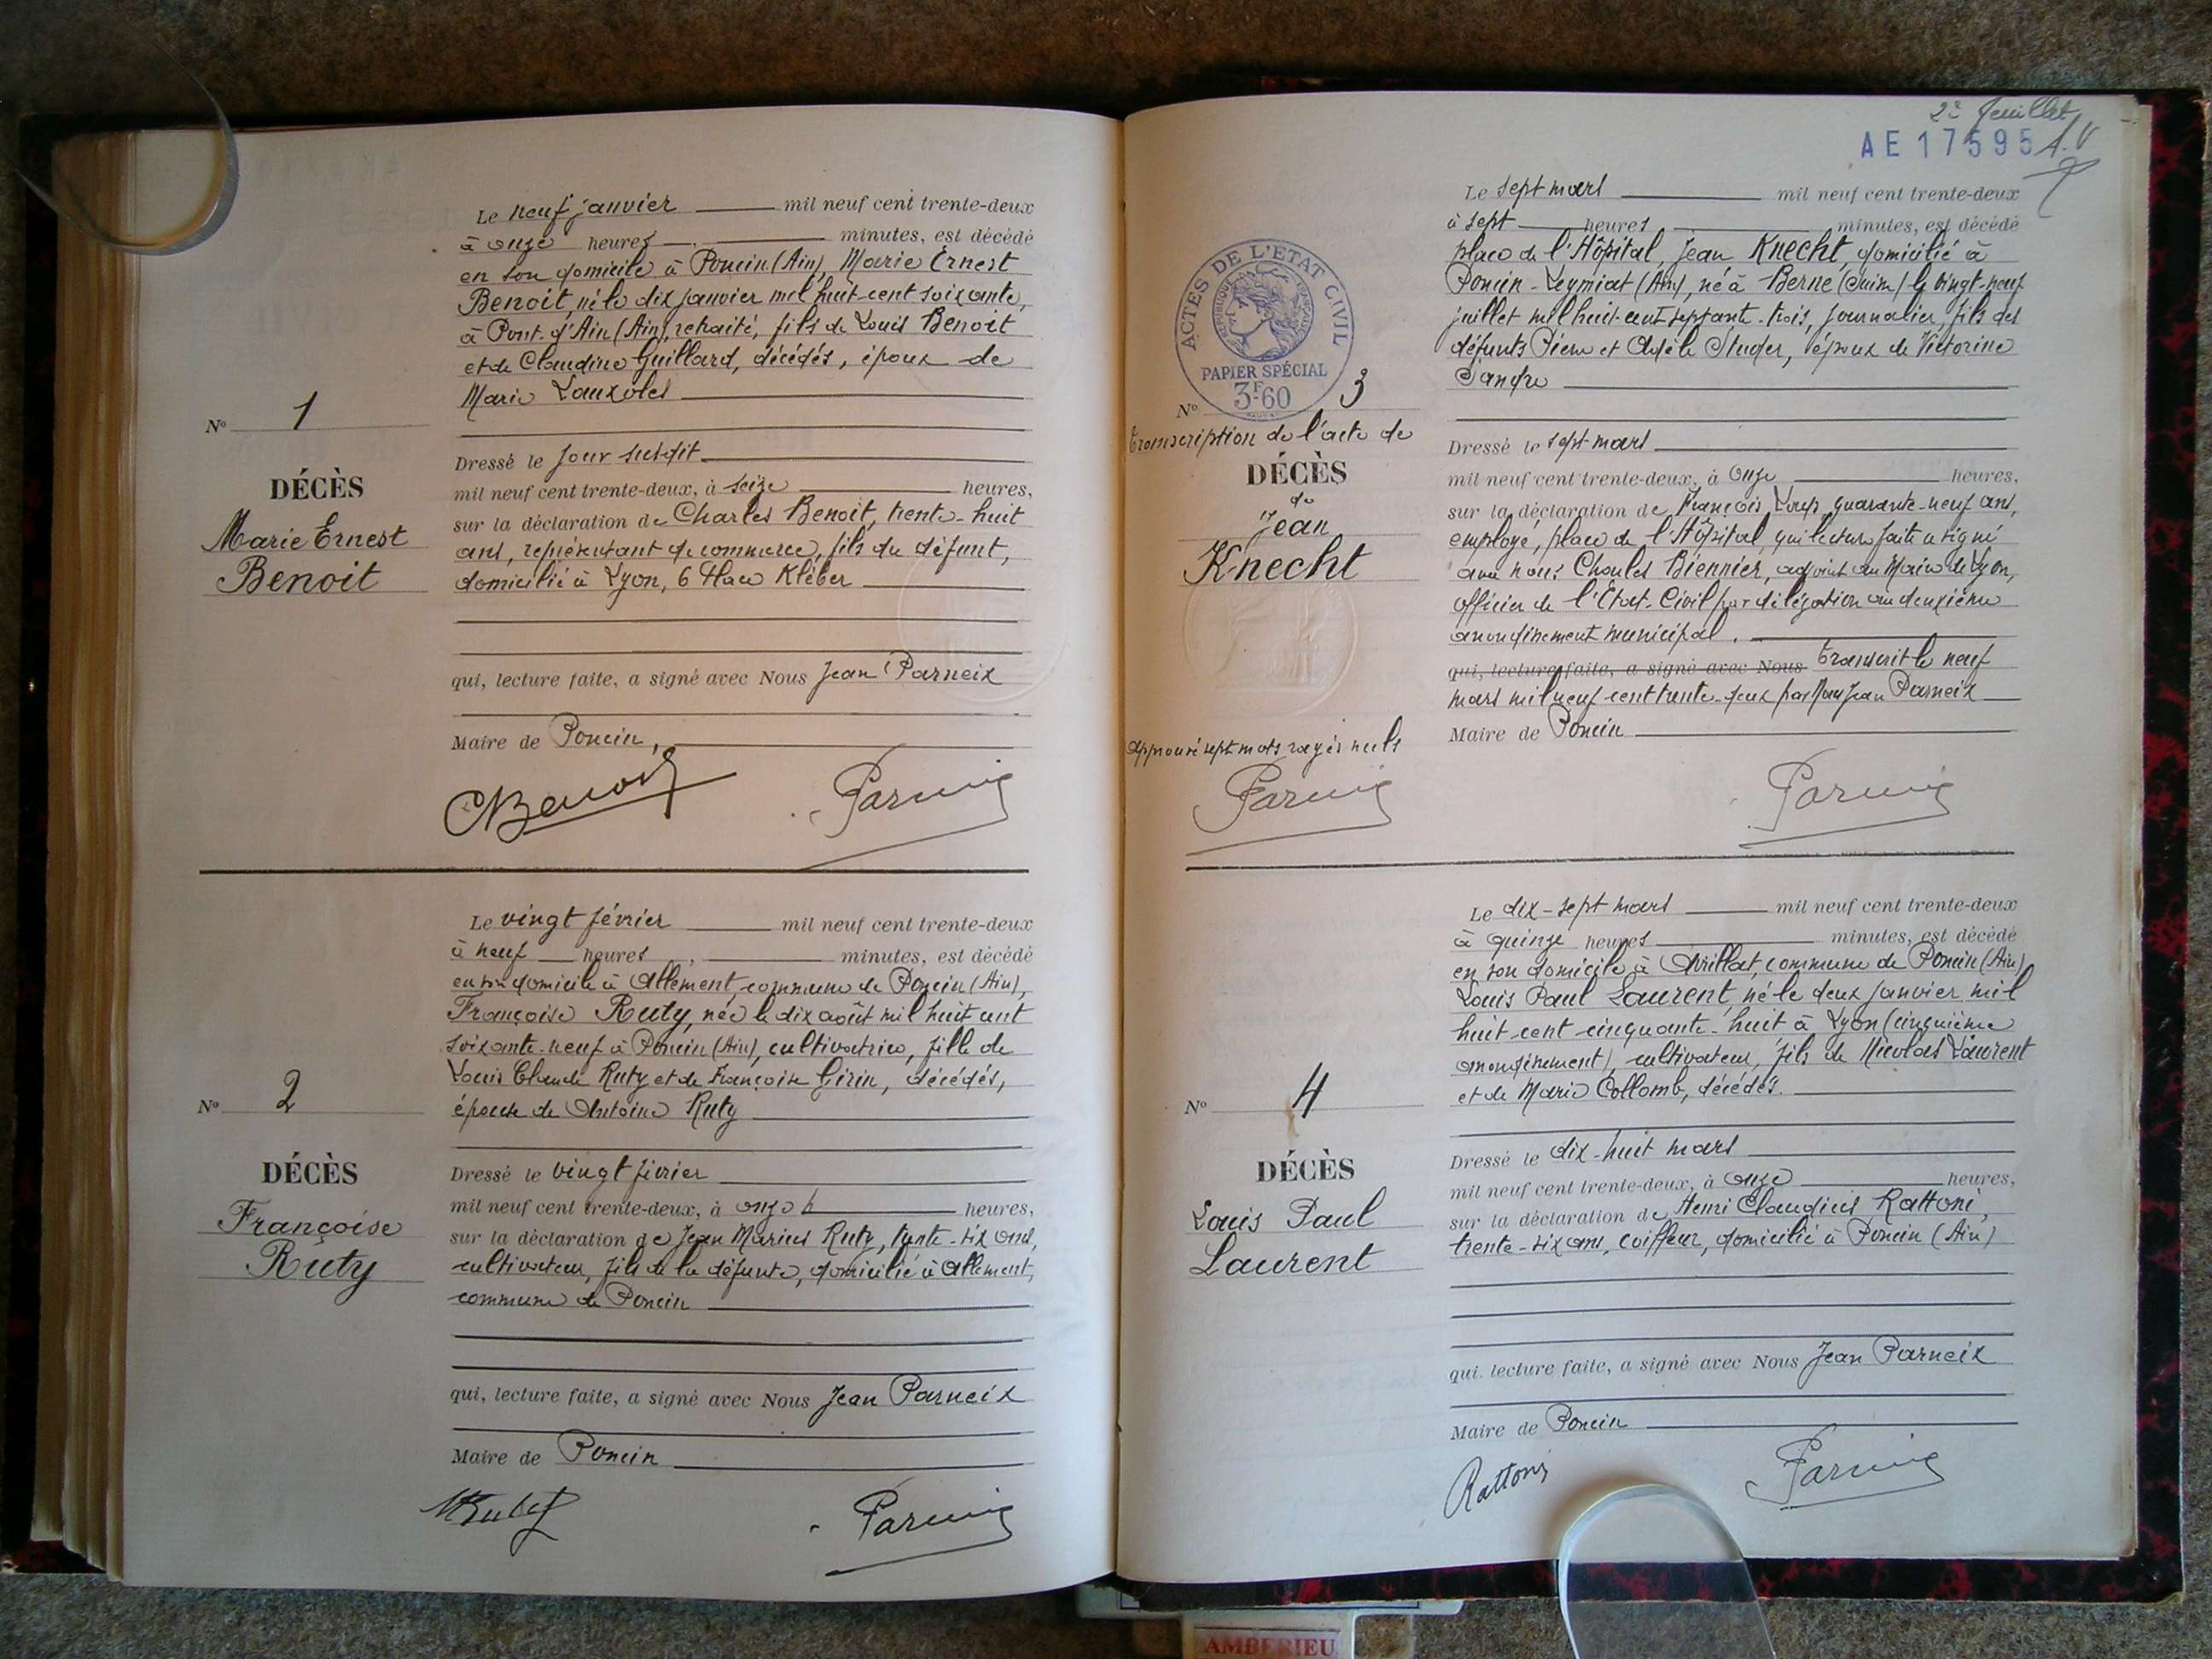 Le neuf janvier mil neuf cent trente-deux
à onze heures minutes, est décédé
en son domicile à Poncin (Ain), Marie Ernest
Benoit, né le dix janvier mil huit cent soixante,
à Pont-d'Ain (Ain), retraité, fils de Louis Benoit
et de Claudine Guillard, décédés, époux de
Marie
N° 1
DÉCÈS
Marie Ernest
Benoit
Dressé le jour susdit
mil neuf cent trente-deux, à seize heures,
sur la déclaration de Charles Benoit, trente-huit
ans, représentant de commerce, fils du défunt,
domicilié à Lyon, 6 Place Kléber
qui, lecture faite, a signé avec Nous Jean Parneix
Maire de Poncin,
CBenoit Parneix
Le vingt février mil neuf cent trente-deux
à neuf heures, minutes, est décédé
en son domicile à Allement, commune de Poncin (Ain),
Françoise Ruty, née le dix août mil huit cent
soixante-neuf à Poncin (Ain), cultivatrice, fille de
Louis Claude Ruty et de Françoise Girin, décédés,
épouse de Antoine Ruty
N° 2
DÉCÈS
Françoise
Ruty
Dressé le vingt février
mil neuf cent trente-deux, à onze h heures,
sur la déclaration de Jean Marius Ruty, trente-six ans,
cultivateur, fils de la défunte, domicilié à Allement,
commune de Poncin
qui, lecture faite, a signé avec Nous Jean Parneix
Maire de Poncin
Parneix
2e feuillet
AE 17595 A.V
Le sept mars mil neuf cent trente-deux
à sept heures minutes, est décédé
place de l'Hôpital, Jean Knecht, domicilié à
Poncin-Leymiat (Ain), né à Berne (Suisse) le vingt-neuf
juillet mil huit cent septante-trois, journalier, fils des
défunts Pierre et Adèle Studer, époux de Victorine
Sandre
ACTES DE L'ÉTAT CIVIL
RÉPUBLIQUE FRANÇAISE
PAPIER SPÉCIAL
3F60
N° 3
transcription de l'acte de
DÉCÈS
de
Jean
Knecht
Dressé le sept mars
mil neuf cent trente-deux, à onze heures,
sur la déclaration de François Loup, quarante-neuf ans,
employé, place de l'Hôpital, qui lecture faite a signé
avec nous Charles Biennier, adjoint au Maire de Lyon,
officier de l'État-Civil par délégation au deuxième
arrondissement municipal.
qui, lecture faite, a signé avec Nous Transcrit le neuf
mars mil neuf cent trente-deux par Nous Jean Parneix
Maire de Poncin
Approuvé sept mots rayés nuls
Parneix Parneix
Le dix-sept mars mil neuf cent trente-deux
à quinze heures minutes, est décédé
en son domicile à Avrillat, commune de Poncin (Ain)
Louis Paul Laurent né le deux janvier mil
huit cent cinquante-huit à Lyon (cinquième
arrondissement), cultivateur, fils de Nicolas Laurent
et de Marie Collomb, décédés.
N° 4
DÉCÈS
Louis Paul
Laurent
Dressé le dix-huit mars
mil neuf cent trente-deux, à onze heures,
sur la déclaration de Henri Claudius Rattoni,
trente-six ans, coiffeur, domicilié à Poncin (Ain)
qui, lecture faite, a signé avec Nous Jean Parneix
Maire de Poncin
Rattoni Parneix
AMBERIEU